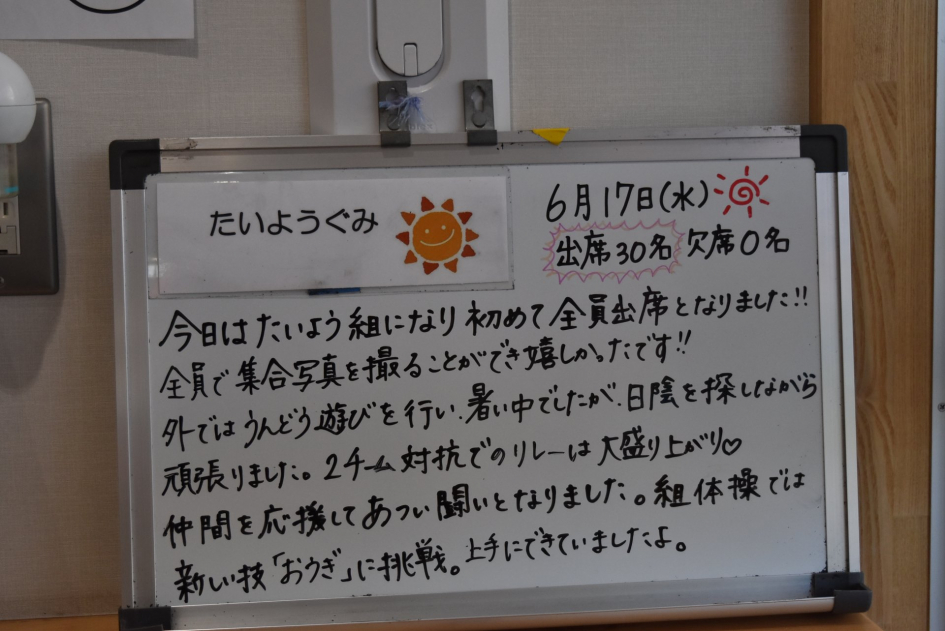 たいようぐみ
6月17日(水)
出席30名 欠席0名
今日はたいよう組になり初めて全員出席となりました!!
全員で集合写真を撮ることができ嬉しかったです!!
外ではうんどう遊びを行い、暑い中でしたが、日陰を探しながら
頑張りました。2チーム対抗でのリレーは大盛り上がり♡
仲間を応援してあつい闘いとなりました。組体操では
新しい技「おうぎ」に挑戦。上手にできていましたよ。